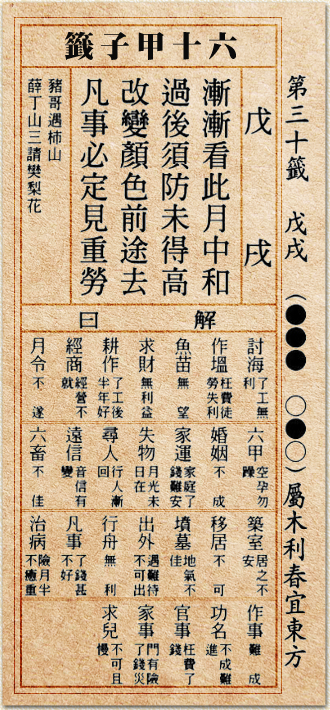 六十甲子籤
第三十籤 戊戌 (●●● ○●○)屬木利春宜東方
戊戌
漸漸看此月中和
過後須防未得高
改變顏色前途去
凡事必定見重勞
豬哥遇柿山
薛丁山三請樊梨花
解曰
討海 了工無利
作塭 枉費徒勞失利
魚苗 無望
求財 無利益
耕作 了工後半年好
經商 經營不就
月令 不遂
六甲 空孕勿躁
婚姻 不成
家運 家庭了錢難安
失物 月光未日在
尋人 行人漸回
遠信 音信有變
六畜 不佳
築室 居之不安
移居 不可
墳墓 地氣不佳
出外 遇難待不可出
行舟 無利
凡事 了錢甚不好
治病 險月半不癒重
作事 難成
功名 不成難進
官事 枉費了錢
家事 門有險了錢災
求兒 不可且慢